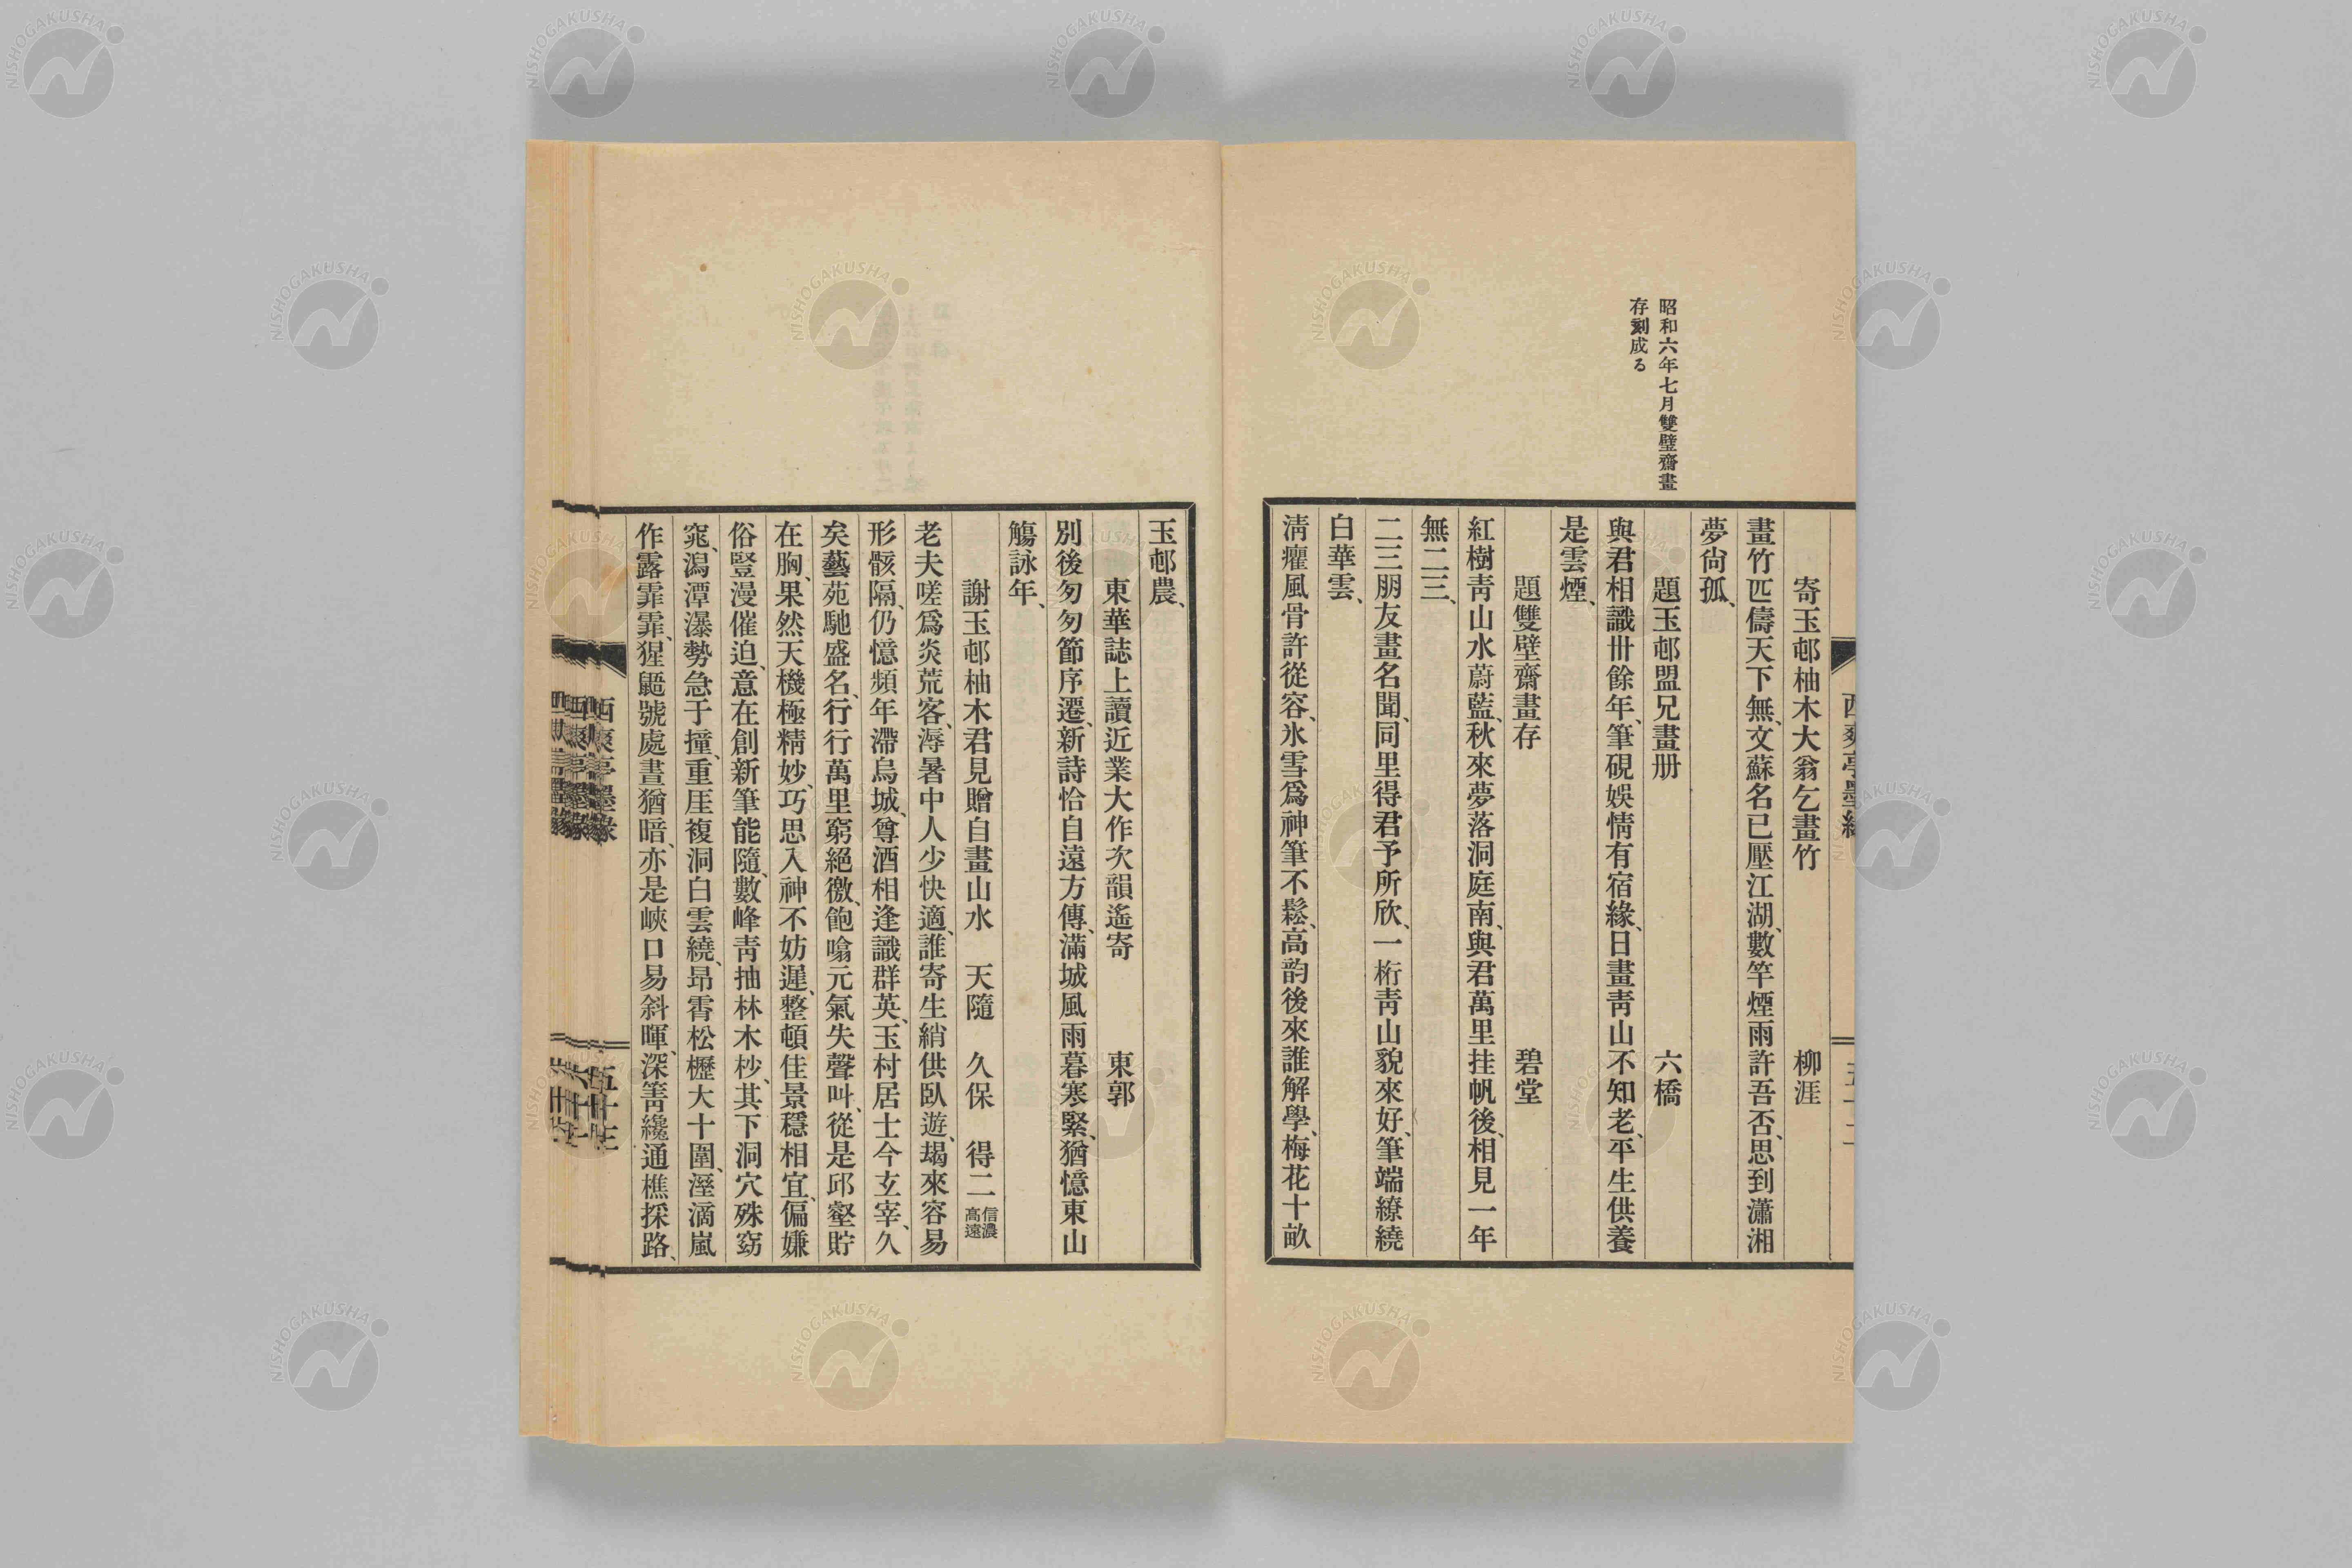 昭和六年七月雙璧齋畫
存刻成る
寄玉邨柚木大翁乞畫竹　柳涯
畫竹匹儔天下無、文蘇名已壓江湖、數竿煙雨許吾否、思到瀟湘
夢尙孤、
題玉邨盟兄畫册　六橋
與君相識卅餘年、筆硯娛情有宿緣、日畫靑山不知老、平生供養
是雲煙、
題雙壁齋畫存　碧堂
紅樹靑山水蔚藍、秋來夢落洞庭南、與君萬里挂帆後、相見一年
無二三、
二三朋友畫名聞、同里得君予所欣、一桁靑山貌來好、筆端繚繞
白華雲、
淸癯風骨許從容、氷雪爲神筆不鬆、高韵後來誰解學、梅花十畝
玉邨農、
東華誌上讀近業大作次韻遙寄　東郭
別後匆匆節序遷、新詩恰自遠方傳、滿城風雨暮寒緊、猶憶東山
觴詠年、
謝玉邨柚木君見贈自畫山水　天隨　久保　得二　信濃高遠
老夫嗟爲炎荒客、溽暑中人少快適、誰寄生綃供臥遊、朅來容易
形骸隔、仍憶頻年滯烏城、尊酒相逢識群英、玉村居士今玄宰、久
矣藝苑馳盛名、行行萬里窮絕徼、飽噏元氣失聲叫、從是邱壑貯
在胸、果然天機極精妙、巧思入神不妨遲、整頓佳景穩相宜、偏嫌
俗豎漫催迫、意在創新筆能隨、數峰靑抽林木杪、其下洞穴殊窈
窕、潟潭瀑勢急于撞、重厓複洞白雲繞、昂霄松櫪大十圍、溼滴嵐
作露霏霏、猩鼯號處晝猶暗、亦是峽口易斜暉、深箐纔通樵採路、
西爽亭墨緣
五十三